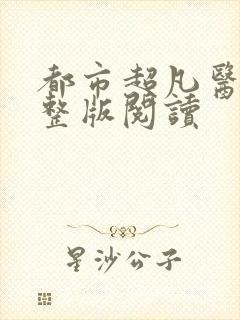 都市超凡醫
整版閱讀
星沙公子